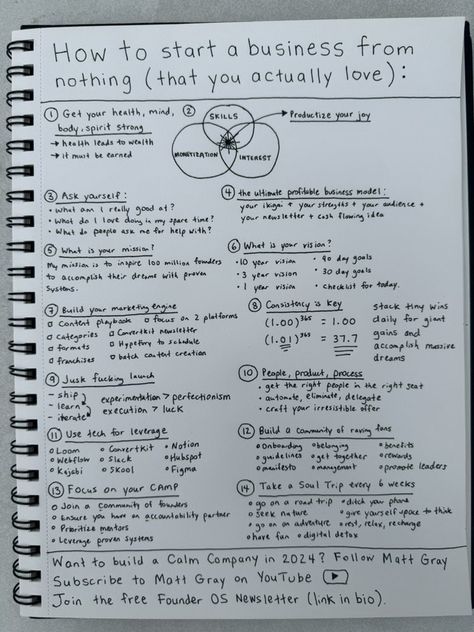 How to start a business from
nothing (that you actually love):
① Get your health, mind,
body, spirit strong
→ health leads to wealth
→ it must be earned
②
SKILLS
MONETIZATION
INTEREST
Productize your joy
③ Ask yourself:
• What am I really good at?
• What do I love doing in my spare time?
• What do people ask me for help with?
④ the ultimate profitable business model:
your ikigai + your strengths + your audience +
your newsletter + cash flowing idea
⑤ What is your mission?
My mission is to inspire 100 million founders
to accomplish their dreams with proven
systems.
⑥ What is your vision?
• 10 year vision
• 3 year vision
• 1 year vision
• 90 day goals
• 30 day goals
• checklist for today.
⑦ Build your marketing engine
o Content playbook
o categories
o formats
o franchises
o focus on 2 platforms
o Convertkit newsletter
o Hypefury to schedule
o batch content creation
⑧ Consistency is key
(1.00)³⁶⁵ = 1.00
(1.01)³⁶⁵ = 37.7
stack tiny wins
daily for giant
gains and
accomplish massive
dreams
⑨ Just fucking launch
- ship
- learn
- iterate
experimentation > perfectionism
execution > luck
⑩ People, product, process
• get the right people in the right seat
• automate, eliminate, delegate
• craft your irresistible offer
⑪ Use tech for leverage
o Loom
o Webflow
o Kajabi
o Convertkit
o Slack
o Skool
o Notion
o Hubspot
o Figma
⑫ Build a community of raving fans
o Onboarding
o guidelines
o manifesto
o belonging
o get together
o management
o benefits
o rewards
o promote leaders
⑬ Focus on your CAMP
o Join a community of founders
o Ensure you have an accountability partner
o Prioritize mentors
o Leverage proven systems
⑭ Take a Soul Trip every 6 weeks
o go on a road trip
o seek nature
o go on an adventure
o have fun
o ditch your phone
o give yourself space to think
o rest, relax, recharge
o digital detox
Want to build a Calm Company in 2024? Follow Matt Gray
Subscribe to Matt Gray on YouTube
Join the free Founder OS Newsletter (link in bio).